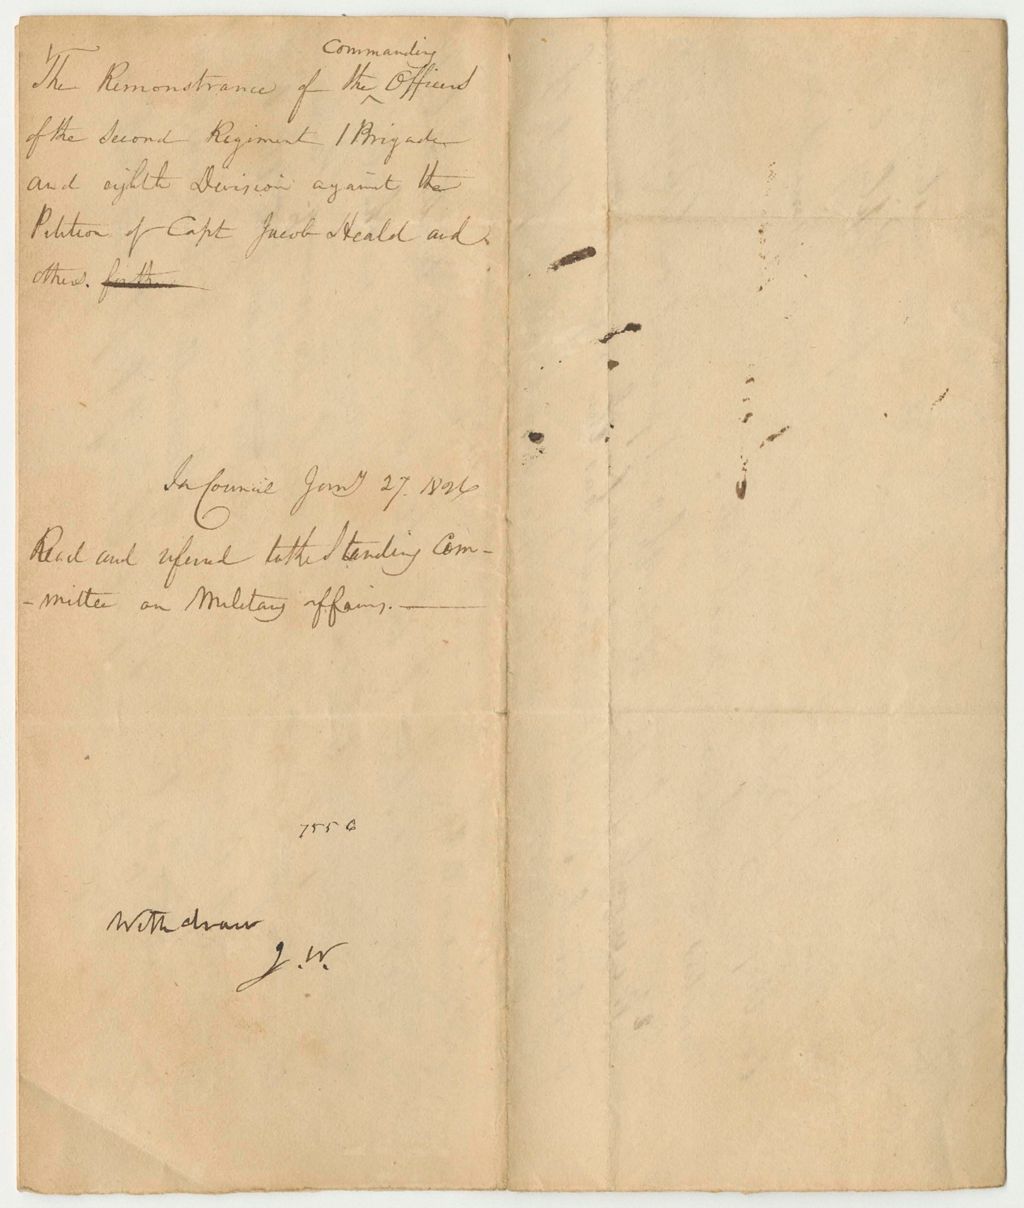 The Remonstrance of the ^ Commanding Officers
of the Second Regiment 1 Brigade
and eighth Division against the
Petition of Capt Jacob Heald and
others.
In Council Jany 27. 1826
Read and referred to the Standing Com-
-mittee on Military affairs.
7556
Withdraw
J.W.